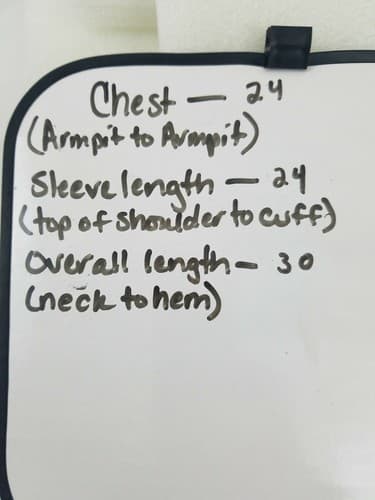 Chest — 24
(Armpit to Armpit)
Sleeve length — 24
(top of shoulder to cuff)
Overall length - 30
(neck to hem)